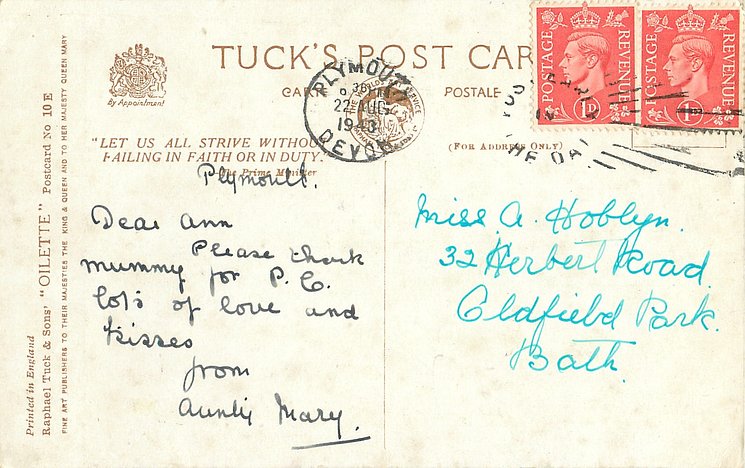 TUCK'S POST CAR
CAR
POSTALE
By Appointment
"LET US ALL STRIVE WITHOU
FAILING IN FAITH OR IN DUTY."
The Prime Minister
(FOR ADDRESS ONLY)
PLYMOUT
22 AUG
1943
DEVON
POSTAGE REVENUE
1D
POSTAGE REVENUE
1D
POST EARLY
IN
THE DAY
Plymouth.
Dear Ann
Please thank
mummy for P.C.
lots of love and
kisses
from
Aunty Mary.
Miss A. Hoblyn.
32 Herbert Road.
Oldfield Park.
Bath.
Printed in England
Raphael Tuck & Sons' "OILETTE" Postcard No 10E
FINE ART PUBLISHERS TO THEIR MAJESTIES THE KING & QUEEN AND TO HER MAJESTY QUEEN MARY